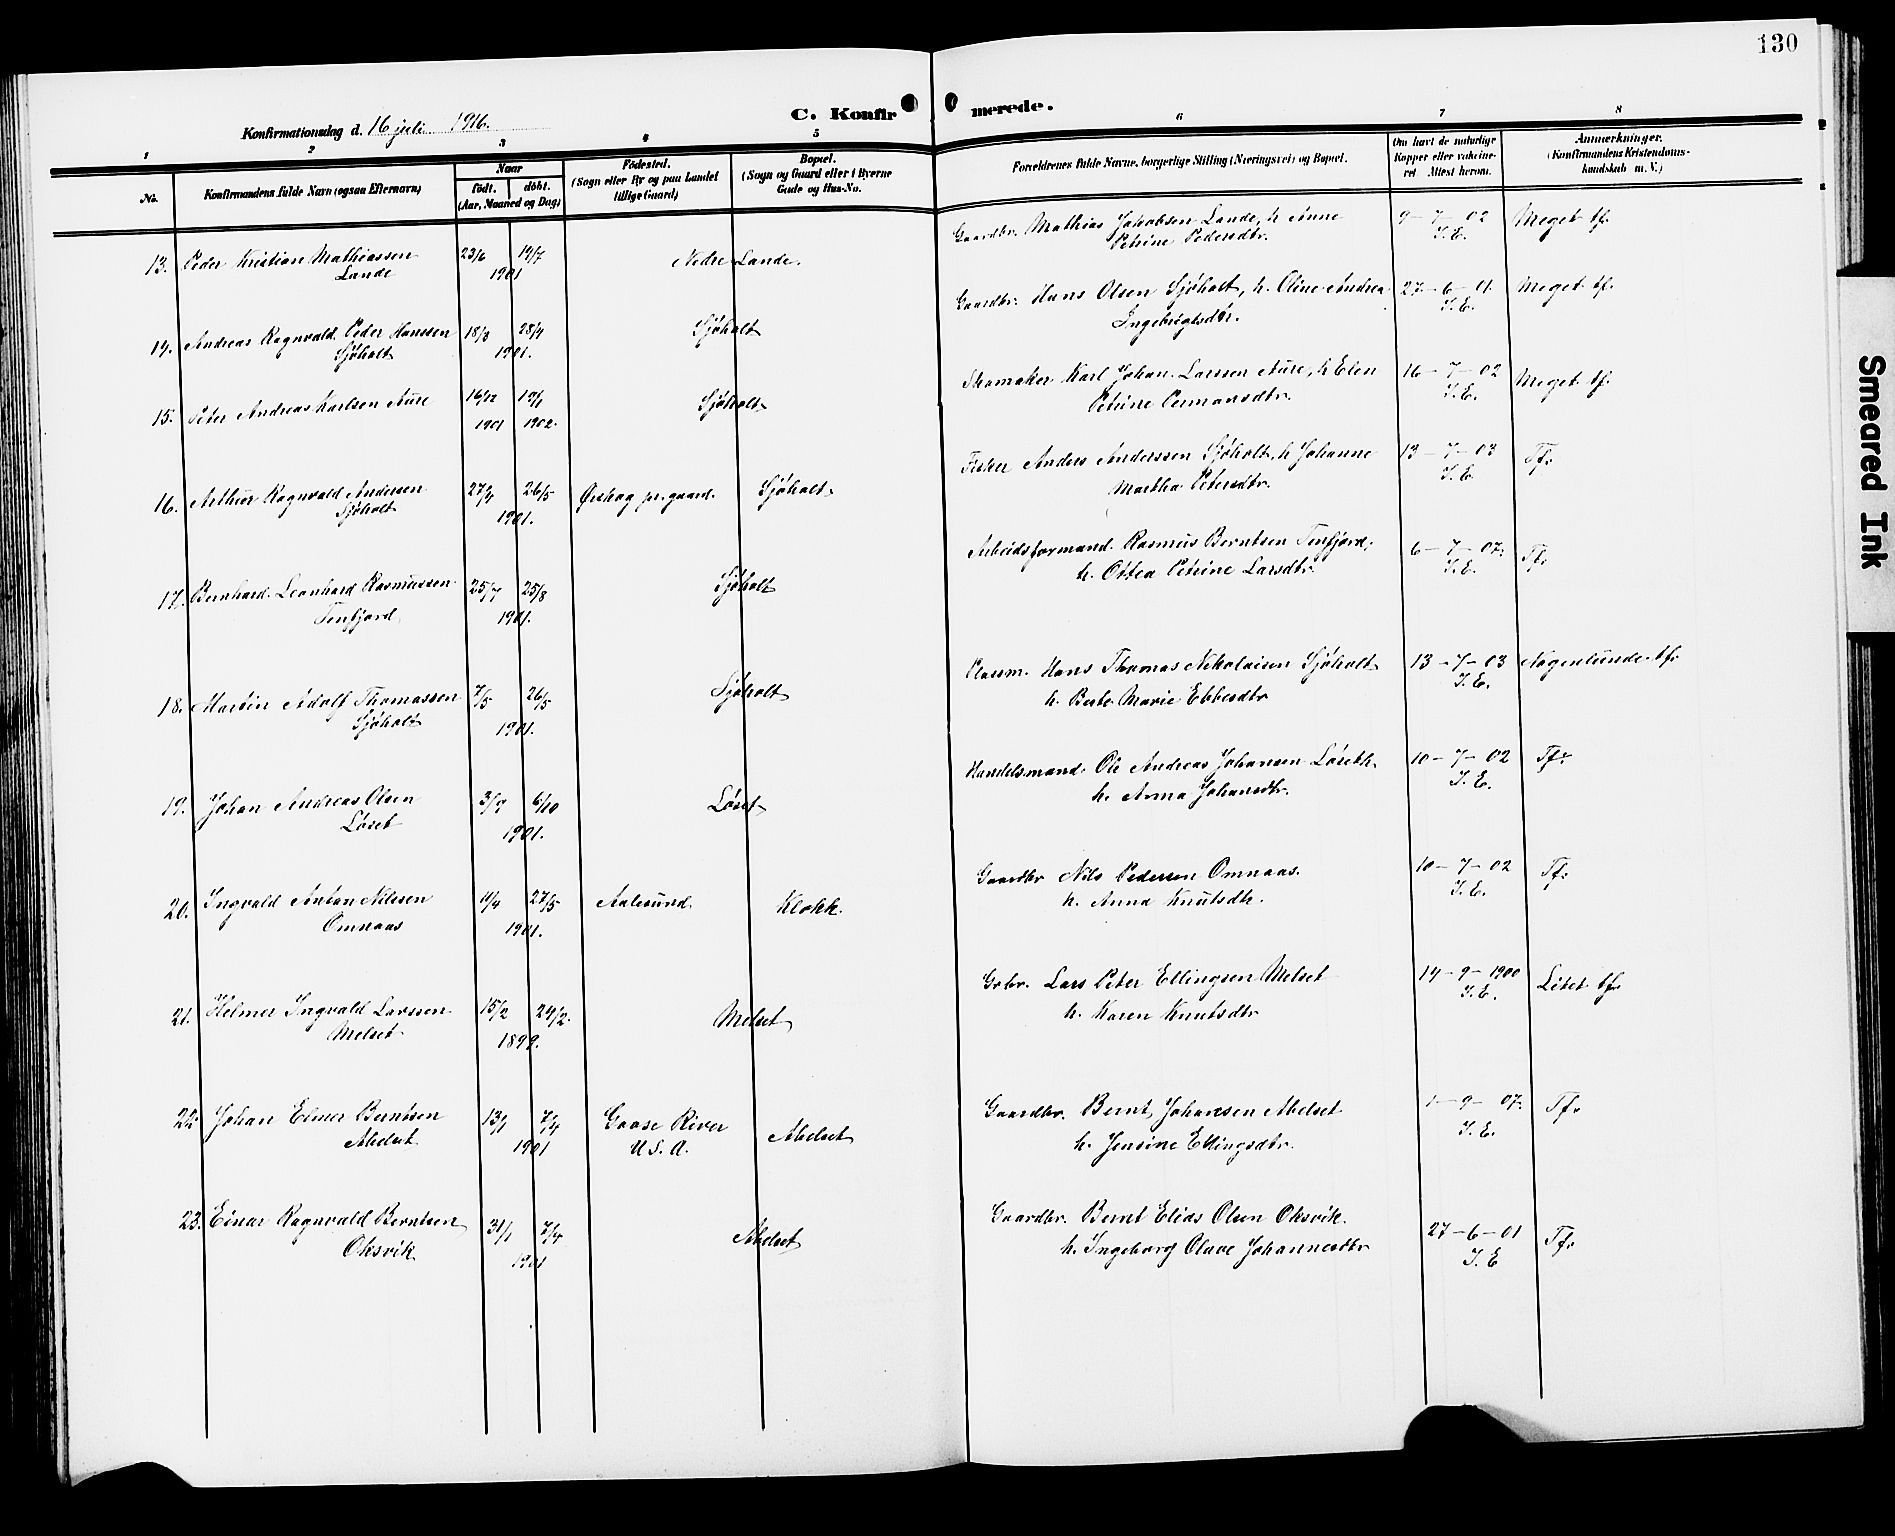 130
C. Konfirmerede.
Konfirmationsdag d. 16 juli 1916.
1 2 3 4 5 6 7 8
No.
Konfirmandens fulde Navn (ogsaa Efternavn)
Naar
født. døbt.
(Aar, Maaned og Dag)
Fødested.
(Sogn eller By og paa Landet
tillige Gaard)
Bopæl.
(Sogn og Gaard eller i Byerne
Gade og Hus-No.
Forældrenes fulde Navne, borgerlige Stilling (Næringsvei) og Bopæl.
Om havt de naturlige
Kopper eller vakcine-
ret Attest herom.
Anmærkninger.
(Konfirmandens Kristendoms-
kundskab m. V.)
13. Peder Kristian Mathiassen 23/6 14/7 Nedre Lande. Gaardbr. Mathias Jakobsen Lande, h. Anne 9-7-02 Meget tf.
Lande 1901 Petrine Pedersdtr. I.E.
14. Andreas Ragnvald Peder Hanssen 18/3 28/4 Sjøholt Gaardbr. Hans Olsen Sjøholt, h. Oline Andrea 27-6-01 Meget tf.
Sjøholt 1901. Ingebrigtsdtr. I.E.
15. Peter Andreas Karlsen Aure 16/12 19/1 Sjøholt Skomaker Karl Johan Larssen Aure, h. Elen 16-7-02 Meget tf.
1901 1902. Petrine Permansdtr. I.E.
16. Arthur Ragnvald Andersen 27/4 26/5 Ørskog pr.gaard. Sjøholt. Fisker Anders Anderssen Sjøholt, h. Johanne 13-7-03 Tf.
Sjøholt 1901. Martha Petersdtr. I.E.
17. Bernhard Leonhard Rasmussen 25/7 25/8 Sjøholt Arbeidsformand Rasmus Berntsen Tenfjord, 6-7-07. Tf.
Tenfjord 1901. h. Ottea Petrine Larsdtr. I.E.
18. Martin Adolf Thomassen 7/5 26/5 Sjøholt Plassm. Hans Thomas Nikolaisen Sjøholt 13-7-03 Nogenlunde tf.
Sjøholt 1901. h. Berte Marie Ebbesdtr I.E.
19. Johan Andreas Olsen 3/9 6/10 Løset Handelsmand Ole Andreas Johansen Løseth. 10-7-02 Tf.
Løset 1901. h. Anna Johansdtr. I.E.
20. Ingvald Anton Nilssen 11/4 27/5 Aalesund. Klokk. Gaardbr Nils Pedersen Omnaas. 10-7-02 Tf.
Omnaas 1901. h. Anna Knutsdtr. I.E.
21. Helmer Ingvald Larssen 15/2 24/2. Melset Grbr. Lars Peter Ellingsen Melset 14-9-1900 Litet tf.
Melset 1899. h. Karen Knutsdtr I.E.
22. Johan Elmer Berntsen 13/1 7/4 Goose River Abelset Gaardbr. Bernt Johansen Abelset 1-9-07. Tf.
Abelset 1901 U.S.A. h. Jensine Ellingsdtr. I.E.
23. Einar Ragnvald Berntsen 31/1 7/4 Abelset Gaardbr. Bernt Elias Olsen Oksvik. 27-6-01 Tf.
Oksvik 1901 h. Ingeborg Olave Johannesdtr I.E
Smeared Ink